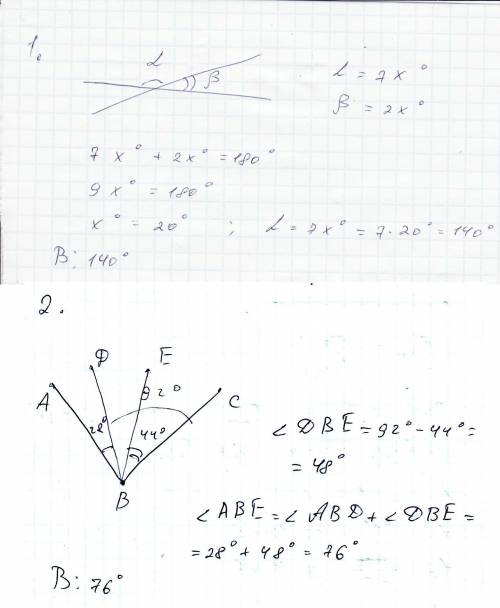 1.
α β
α = 7x°
β = 2x°
7x° + 2x° = 180°
9x° = 180°
x° = 20° ; α = 7x° = 7·20° = 140°
В: 140°
2.
A D E C
28° 92° 44°
B
∠DBE = 92° - 44° =
= 48°
∠ABE = ∠ABD + ∠DBE =
= 28° + 48° = 76°
В: 76°